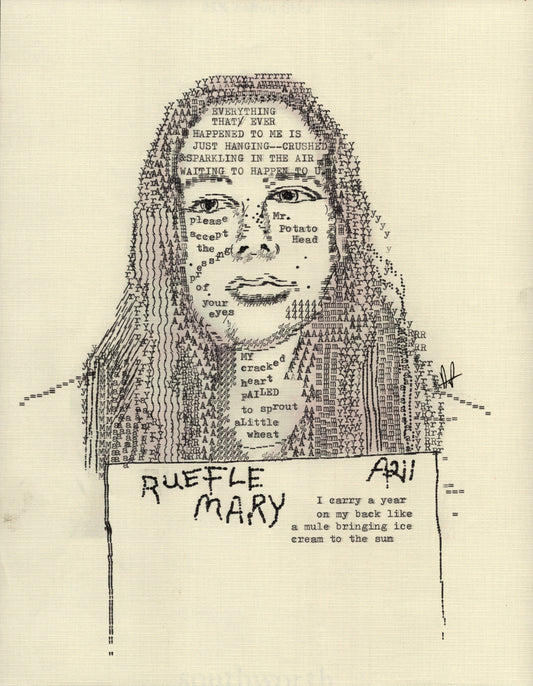 EVERYTHING
THAT/ EVER
HAPPENED TO ME IS
JUST HANGING--CRUSHED
&SPARKLING IN THE AIR
WAITING TO HAPPEN TO U
please
accept
the
pressing
of
your
eyes
Mr.
Potato
Head
MY
cracked
heart
pAILED
to sprout
aLittle
wheat
RUEFLE
MARY
I carry a year
on my back like
a mule bringing ice
cream to the sun
southworth